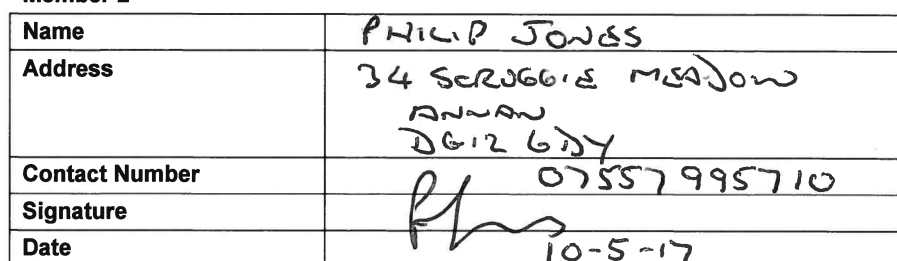 Name PHILIP JONES
Address 34 SCRUGGIE MEADOW
ANNAN
DG12 6DY
Contact Number 07557995710
Signature
Date 10-5-17